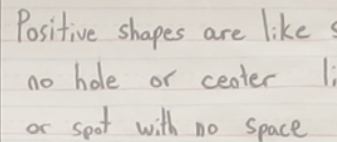 Positive shapes are like
no hole or center
or spot with no space